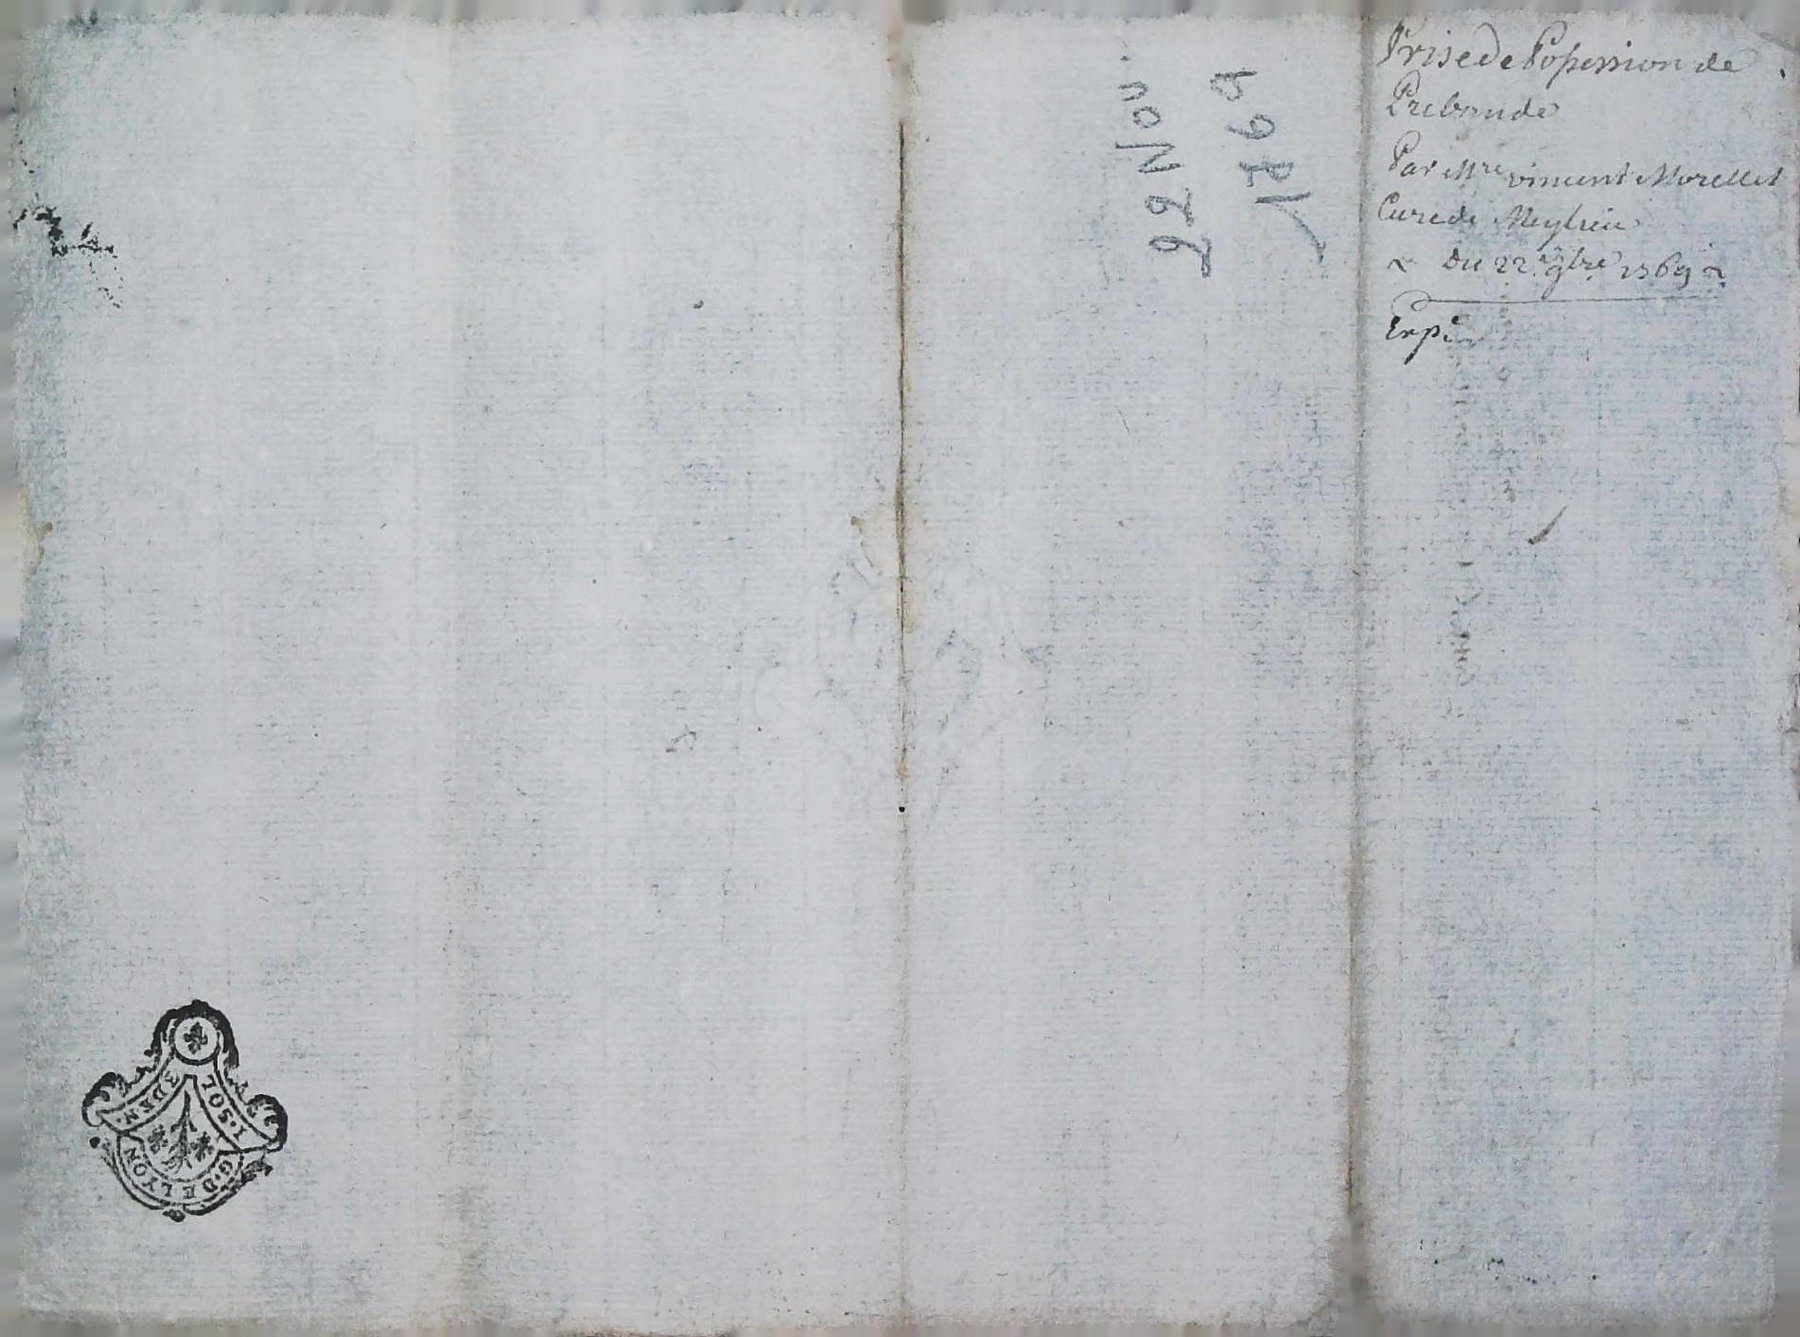 Prise de Possession de
Prebande
Par Mre vincent Morellet
Curé de Meylieu
Du 22e 9bre 1769
Expé
22 Nov
1769
I. SOL
3 DEN.
G. DE LYON